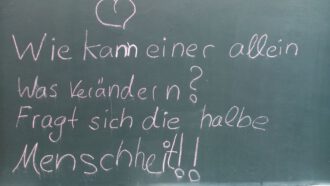 Wie kann einer allein
Was verändern?
Fragt sich die halbe
Menschheit!!